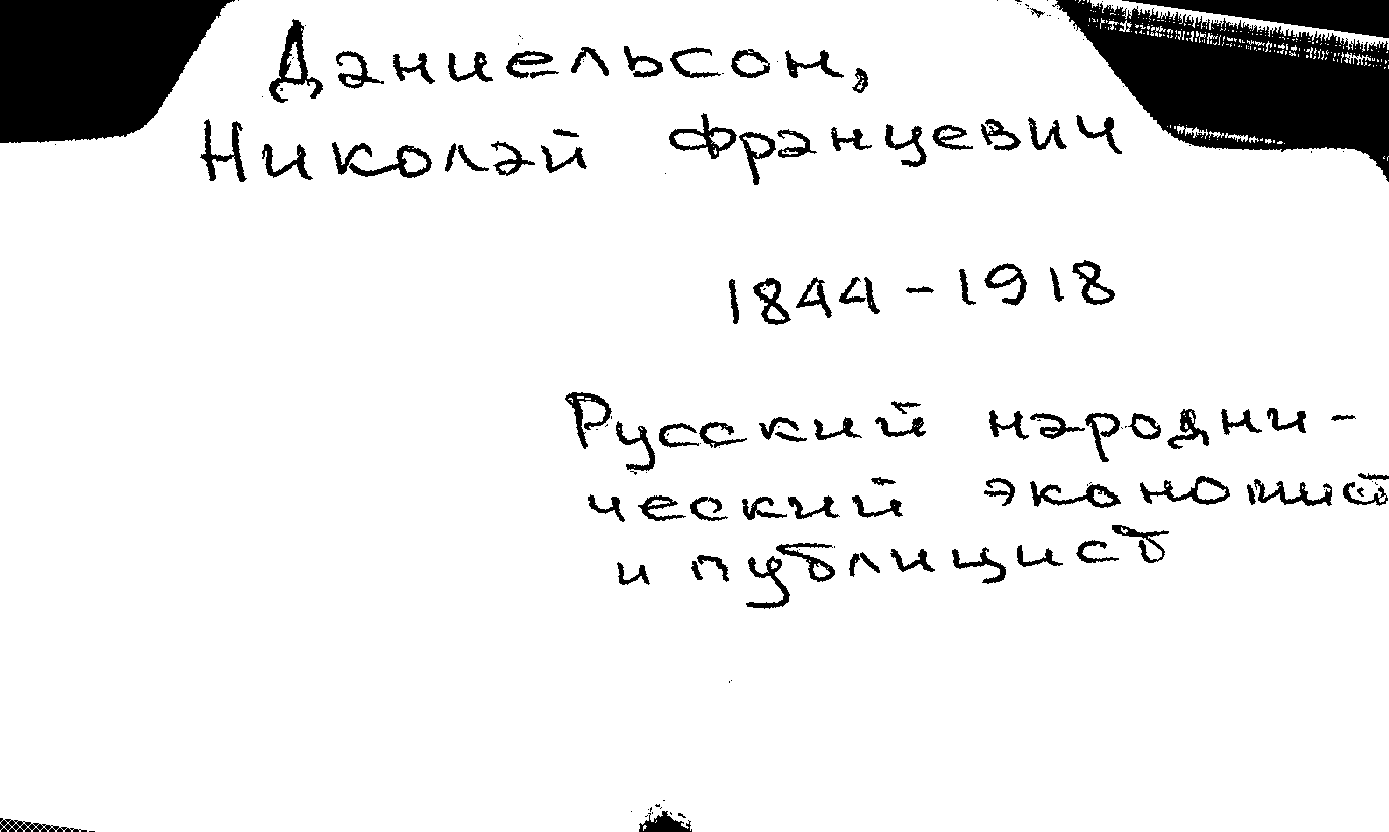 Даниельсон,
Николай Францевич
1844-1918
Русский народни-
ческий экономист
и публицист